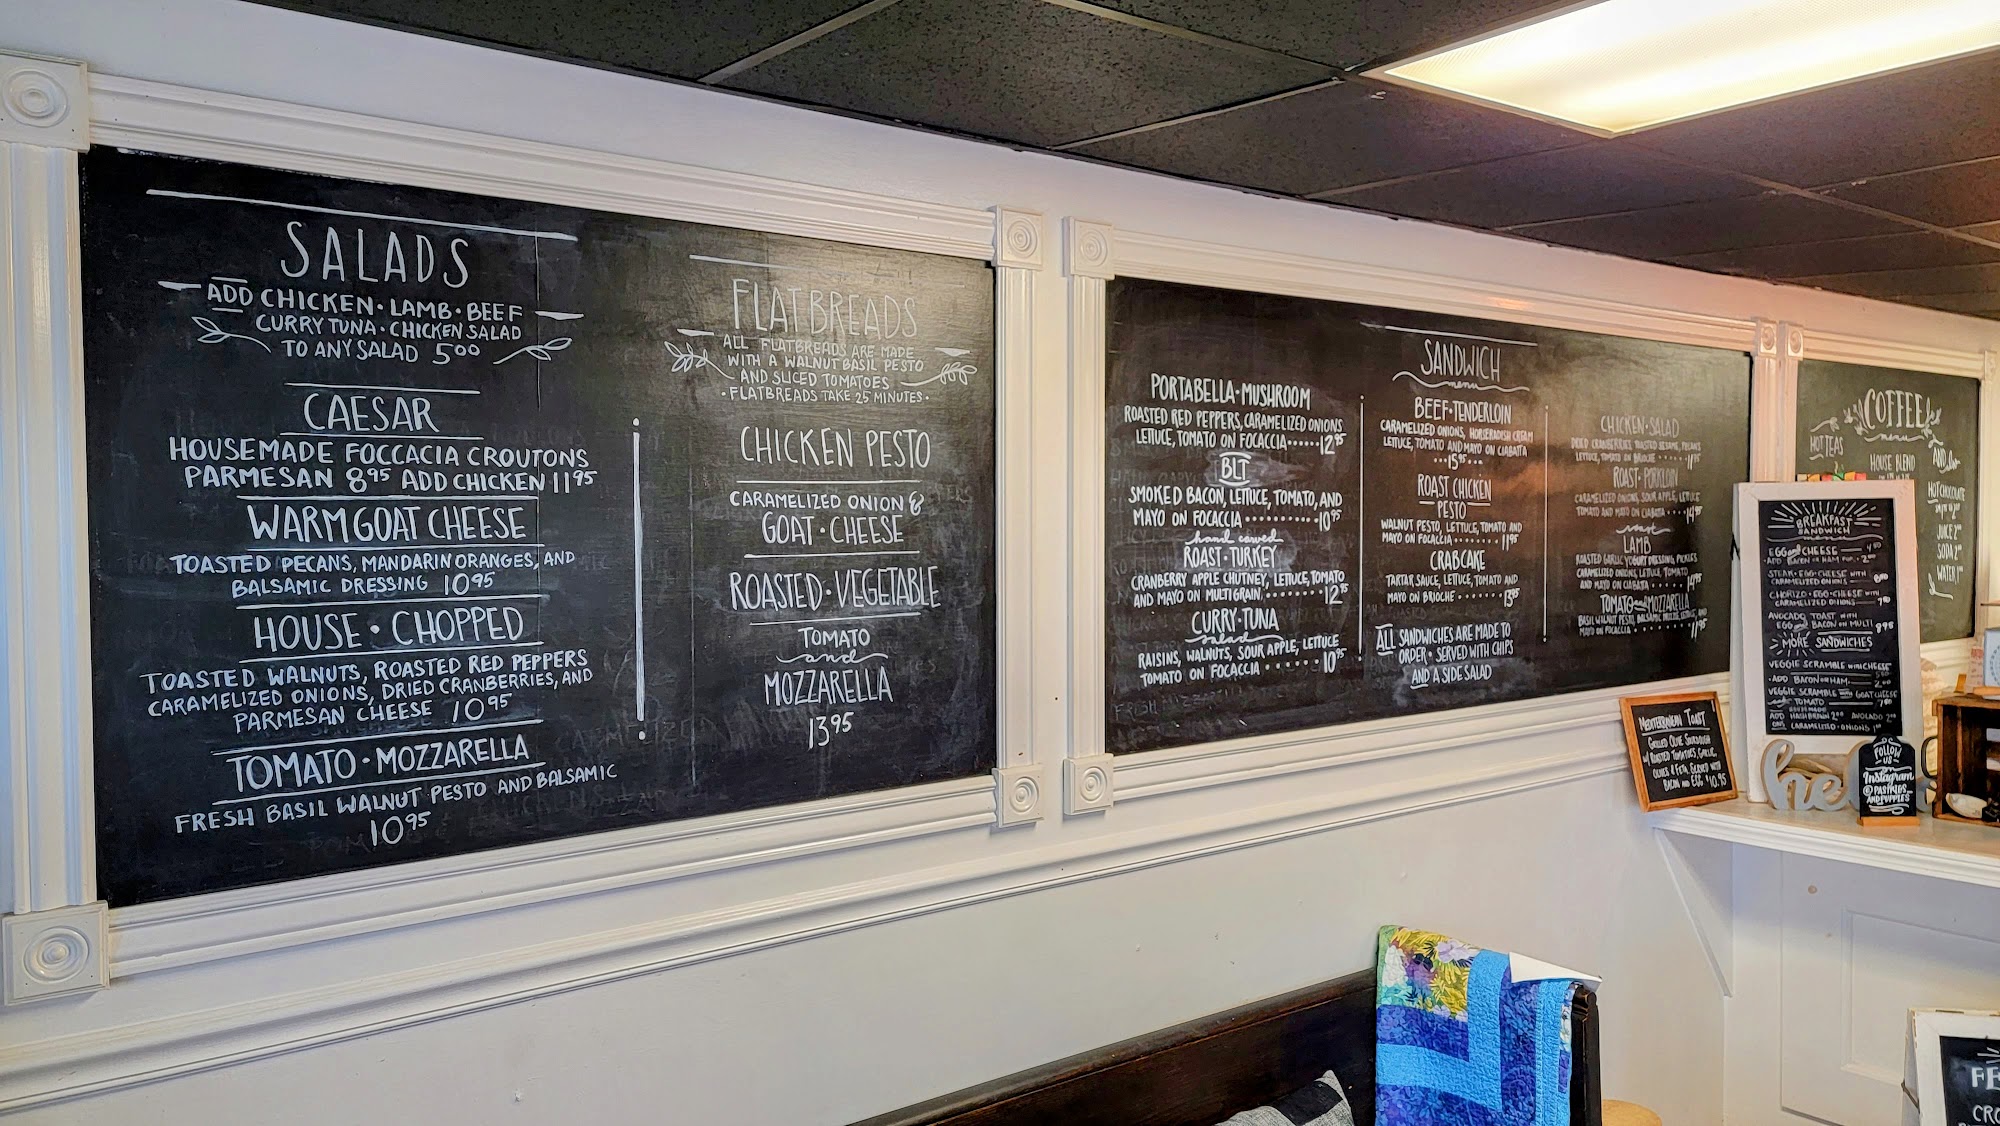 SALADS
ADD CHICKEN · LAMB · BEEF
CURRY TUNA · CHICKEN SALAD
TO ANY SALAD 5⁰⁰
CAESAR
HOUSEMADE FOCCACIA CROUTONS
PARMESAN 8⁹⁵ ADD CHICKEN 11⁹⁵
WARM GOAT CHEESE
TOASTED PECANS, MANDARIN ORANGES, AND
BALSAMIC DRESSING 10⁹⁵
HOUSE · CHOPPED
TOASTED WALNUTS, ROASTED RED PEPPERS
CARAMELIZED ONIONS, DRIED CRANBERRIES, AND
PARMESAN CHEESE 10⁹⁵
TOMATO · MOZZARELLA
FRESH BASIL WALNUT PESTO AND BALSAMIC
10⁹⁵
FLATBREADS
ALL FLATBREADS ARE MADE
WITH A WALNUT BASIL PESTO
AND SLICED TOMATOES
· FLATBREADS TAKE 25 MINUTES ·
CHICKEN PESTO
CARAMELIZED ONION &
GOAT · CHEESE
ROASTED · VEGETABLE
TOMATO
and
MOZZARELLA
13⁹⁵
SANDWICH
menu
PORTABELLA · MUSHROOM
ROASTED RED PEPPERS, CARAMELIZED ONIONS
LETTUCE, TOMATO ON FOCACCIA ······ 12⁹⁵
BLT
SMOKED BACON, LETTUCE, TOMATO, AND
MAYO ON FOCACCIA ·········· 10⁹⁵
hand carved
ROAST · TURKEY
CRANBERRY APPLE CHUTNEY, LETTUCE, TOMATO
AND MAYO ON MULTIGRAIN ·········· 12⁹⁵
CURRY · TUNA
salad
RAISINS, WALNUTS, SOUR APPLE, LETTUCE
TOMATO ON FOCACCIA ········ 10⁹⁵
BEEF · TENDERLOIN
CARAMELIZED ONIONS, HORSERADISH CREAM
LETTUCE, TOMATO AND MAYO ON CIABATTA
··· 15⁹⁵ ···
ROAST CHICKEN
PESTO
WALNUT PESTO, LETTUCE, TOMATO AND
MAYO ON FOCACCIA ······ 11⁹⁵
CRABCAKE
TARTAR SAUCE, LETTUCE, TOMATO AND
MAYO ON BRIOCHE ······· 13⁹⁵
ALL SANDWICHES ARE MADE TO
ORDER · SERVED WITH CHIPS
AND A SIDE SALAD
CHICKEN · SALAD
DRIED CRANBERRIES, TOASTED SESAME, PECANS
LETTUCE, TOMATO ON BRIOCHE ····· 11⁹⁵
ROAST · PORKLOIN
CARAMELIZED ONIONS, SOUR APPLE, LETTUCE
TOMATO AND MAYO ON CIABATA ···· 14⁹⁵
roast
LAMB
ROASTED GARLIC YOGURT DRESSING, PICKLES
CARAMELIZED ONIONS, LETTUCE, TOMATO
AND MAYO ON CIABATA ······ 14⁹⁵
TOMATO and MOZZARELLA
BASIL WALNUT PESTO, BALSAMIC, LETTUCE, AND
MAYO ON FOCACCIA ········ 11⁹⁵
COFFEE
menu
HOT TEAS
HOUSE BLEND
AND
HOT CHOCOLATE
JUICE 2⁰⁰
SODA 2⁰⁰
WATER 1⁰⁰
BREAKFAST
SANDWICH
EGG and CHEESE 4⁵⁰
· ADD BACON OR HAM 2⁰⁰
STEAK · EGG · CHEESE WITH
CARAMELIZED ONIONS
CHORIZO · EGG · CHEESE WITH
CARAMELIZED ONIONS
AVOCADO TOAST WITH
EGG and BACON ON MULTI 8⁹⁵
MORE SANDWICHES
VEGGIE SCRAMBLE with CHEESE
· ADD BACON OR HAM
VEGGIE SCRAMBLE GOAT CHEESE
TOMATO
ADD HASHBROWN 2⁰⁰ AVOCADO 2⁰⁰
CARAMELIZED · ONIONS 1⁰⁰
MEDITERRANEAN TOAST
GRILLED OLIVE SOURDOUGH
W/ ROASTED TOMATOES, GARLIC,
OLIVES & FETA, SERVED WITH
BACON AND EGG $10.95
he
FOLLOW
US
on
Instagram
@PASTRIES
ANDPUPPIES
FE
CRO